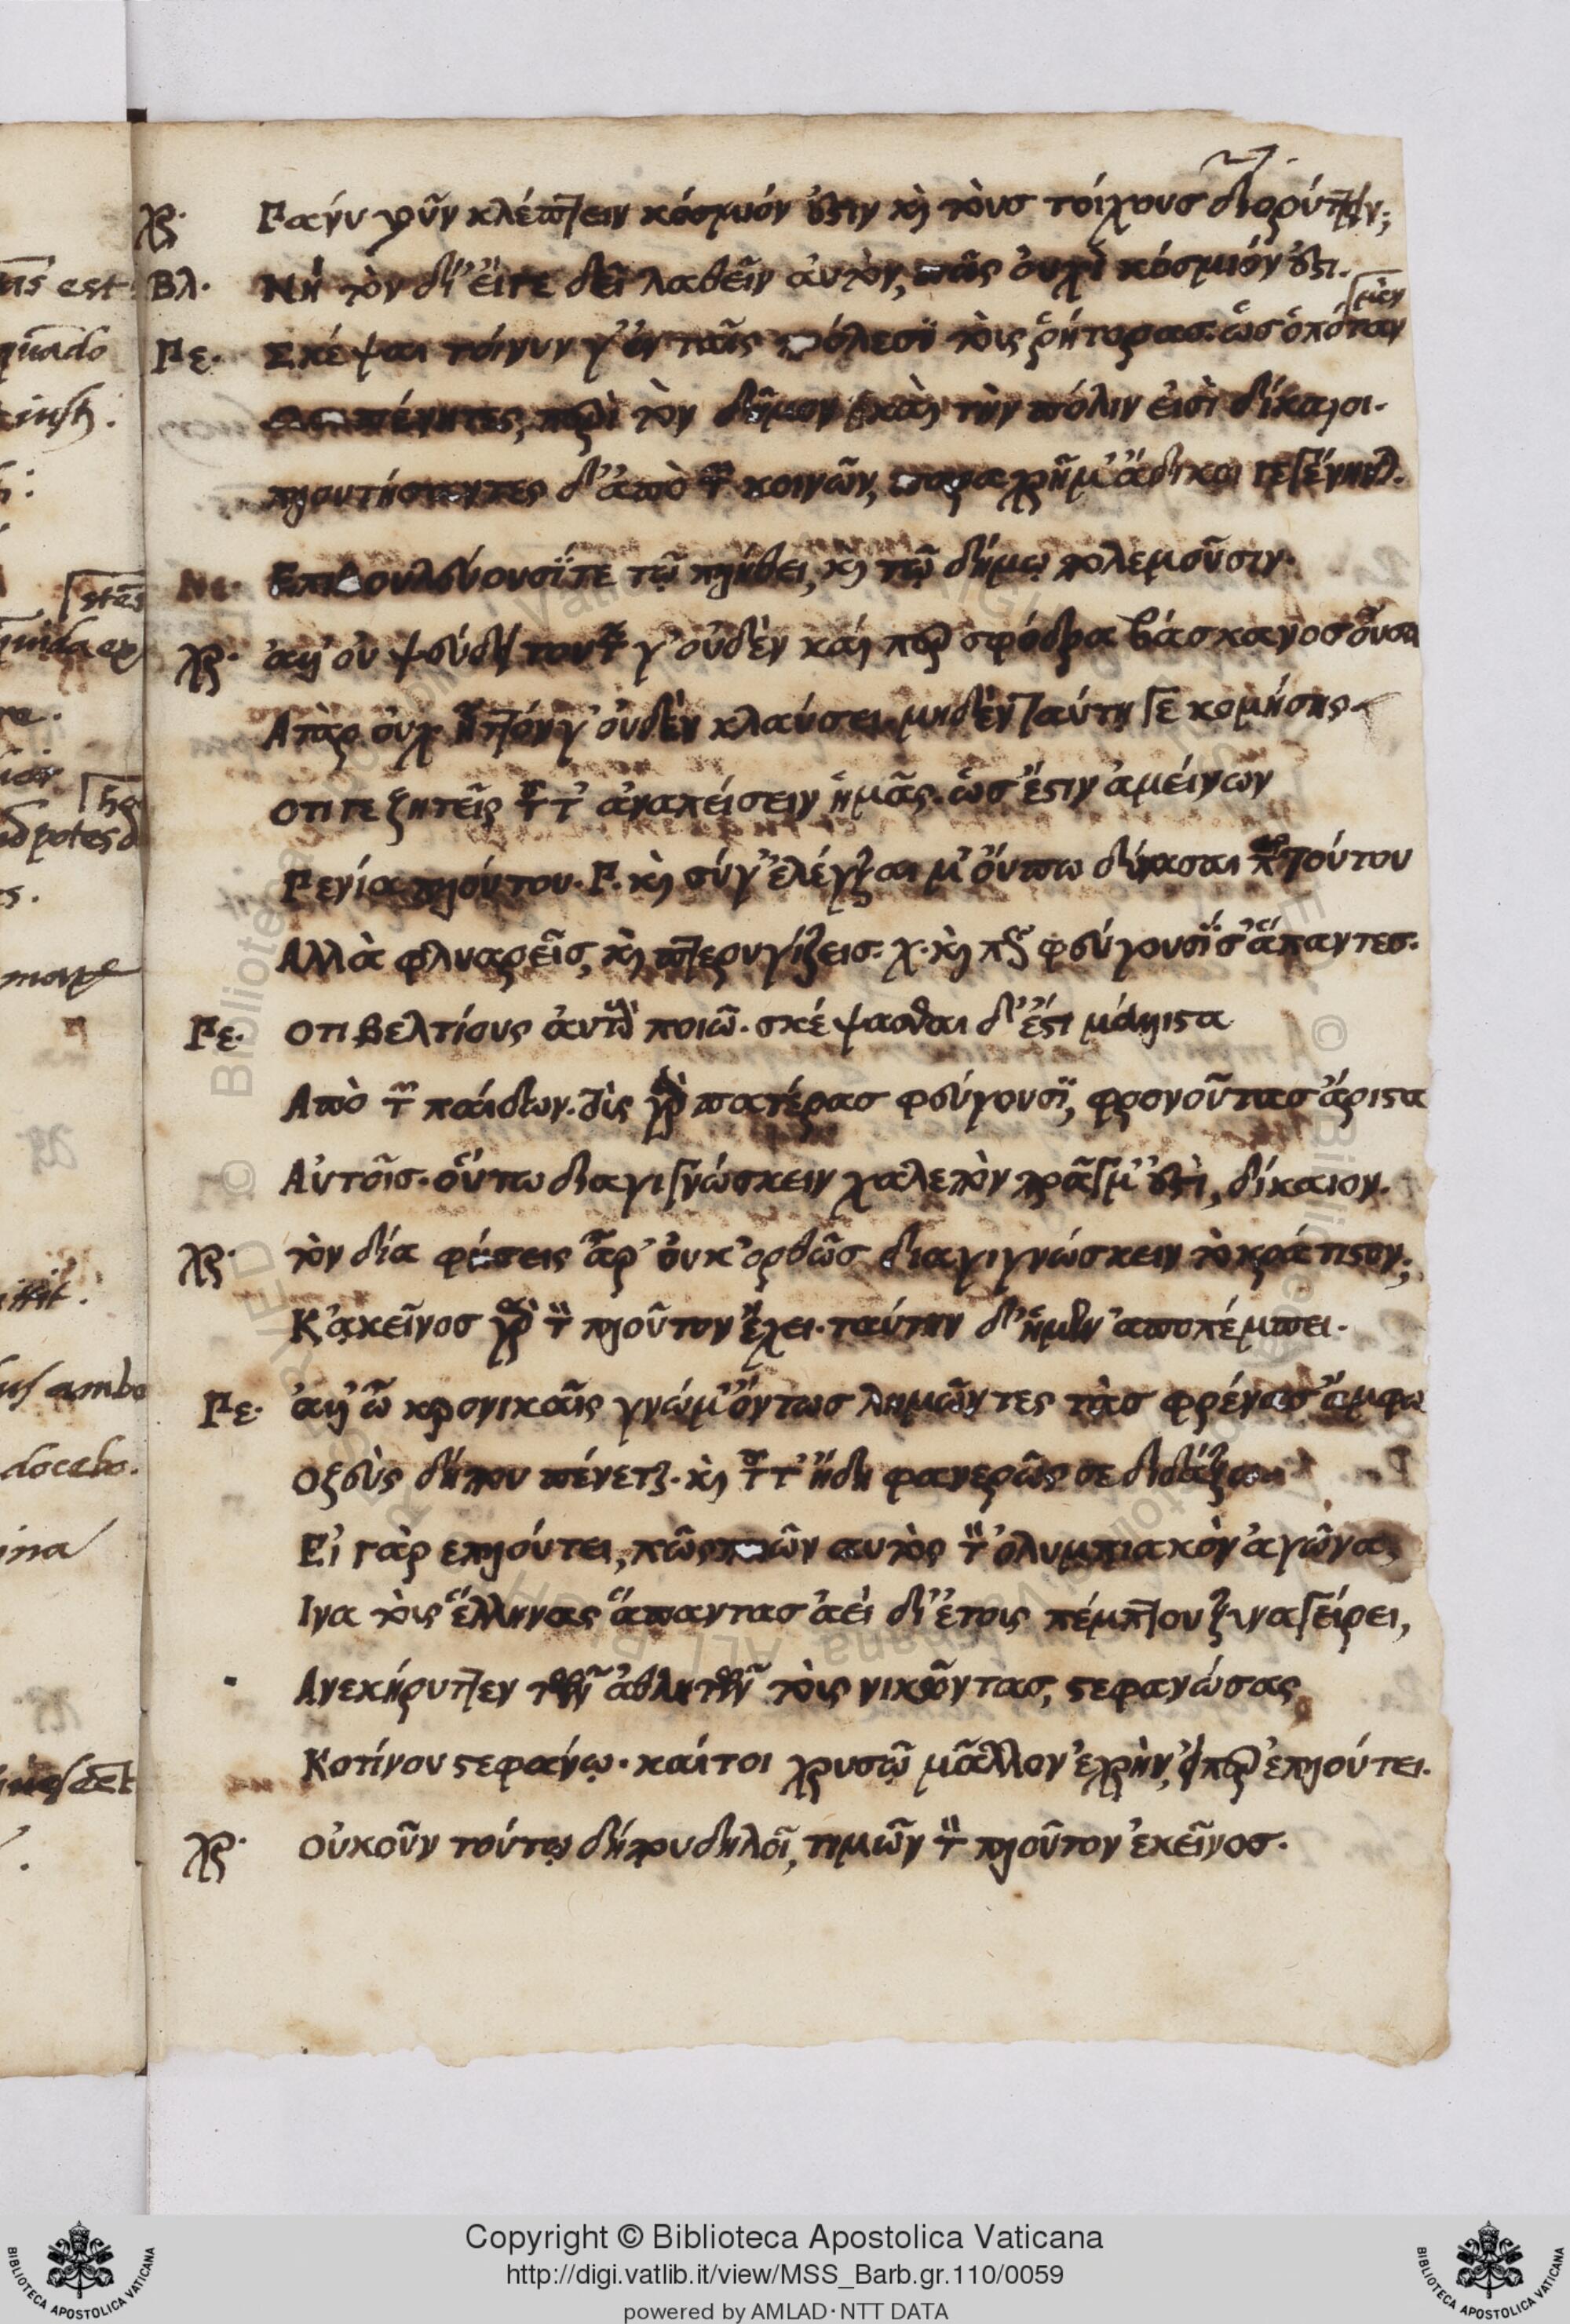 Χρ. Πάνυ γοῦν κλέπτειν κόσμιόν ἐστιν καὶ τοὺς τοίχους διορύττειν;
Βλ. Νὴ τὸν δί' εἴγε δεῖ λαθεῖν αὐτὸν, πῶς οὐχὶ κόσμιόν ἐστι.
μὲν
Πε. Σκέψαι τοίνυν γ' ἐν ταῖς πόλεσϊ τοὺς ῥήτορας. ὡς ὁπόταν
πένητες, περὶ τὸν δῆμον καὶ τὴν πόλιν εἰσὶ δίκαιοι.
πλουτήσαντες δ' ἀπὸ τῶν κοινῶν, παραχρῆμ' ἄδικοι γεγένηνται.
Επιβουλεύουσϊ τε τῷ πλήθει, καὶ τῷ δήμῳ πολεμοῦσιν.
Χρ. ἀλλ' οὐ ψεύδῃ τούτων γ' οὐδὲν καίπερ σφόδρα βάσκανος οὖσα
Ατὰρ οὐχ ἧττόν γ' οὐδὲν κλαύσει. μηδὲν ταύτη γε κομήσης
οτι γε ζητεῖς τοῦτ' ἀναπείσειν ἡμᾶς. ὡς ἔστιν ἀμείνων
Πενία πλούτου. Π. καὶ σύ γ' ἐλέγξαι μ' οὔπω δύνασαι περὶ τούτου
Αλλὰ φλυαρεῖς, καὶ πτερυγίζεις. χ. καὶ πῶς φεύγουσϊ σ' ἅπαντες.
Πε. οτι βελτίους αὐτοὺς ποιῶ. σκέψασθαι δ' ἔστι μάλιστα
Απὸ τῶν παίδων. τοὺς γὰρ πατέρας φεύγουσϊ, φρονοῦντας ἄριστα
Αὐτοῖς. οὕτω διαγιγνώσκειν χαλεπὸν πρᾶγμ' ἐστὶ, δίκαιον.
Χρ. τὸν δία φήσεις ἆρ' οὐκ ὀρθῶς διαγιγνώσκειν τὸ κράτιστον;
Κᾀκεῖνος γὰρ τὸν πλοῦτον ἔχει. ταύτην δ' ἡμῖν ἀποπέμπει.
Πε. ἀλλ' ὦ κρονικαῖς γνώμ' ὄντως λημῶντες τὰς φρένας ἄμφω
οζεὺς δήπου πένεται. καὶ τοῦτ' ἤδη φανερῶς σε διδάξω
Εἰ γὰρ επλούτει, πῶς ποιῶν αυτὸς τὸν ὀλυμπιακὸν ἀγῶνα,
Ινα τοὺς ἕλληνας ἅπαντας ἀεὶ δι' ἔτους πέμπτου ξυναγείρει,
Ανεκήρυττεν τῶν ἀθλητῶν τοὺς νικῶντας, στεφανώσας
Κοτίνου στεφάνῳ. καίτοι χρυσῷ μᾶλλον ἐχρὴν, εἴπερ ἐπλούτει.
Χρ οὐκοῦν τούτῳ δήπου δηλοῖ, τιμῶν τὸν πλοῦτον ἐκεῖνος.
est
stẽs
docebo.
ambo
Copyright © Biblioteca Apostolica Vaticana
http://digi.vatlib.it/view/MSS_Barb.gr.110/0059
powered by AMLAD · NTT DATA
BIBLIOTECA APOSTOLICA VATICANA
BIBLIOTECA APOSTOLICA VATICANA